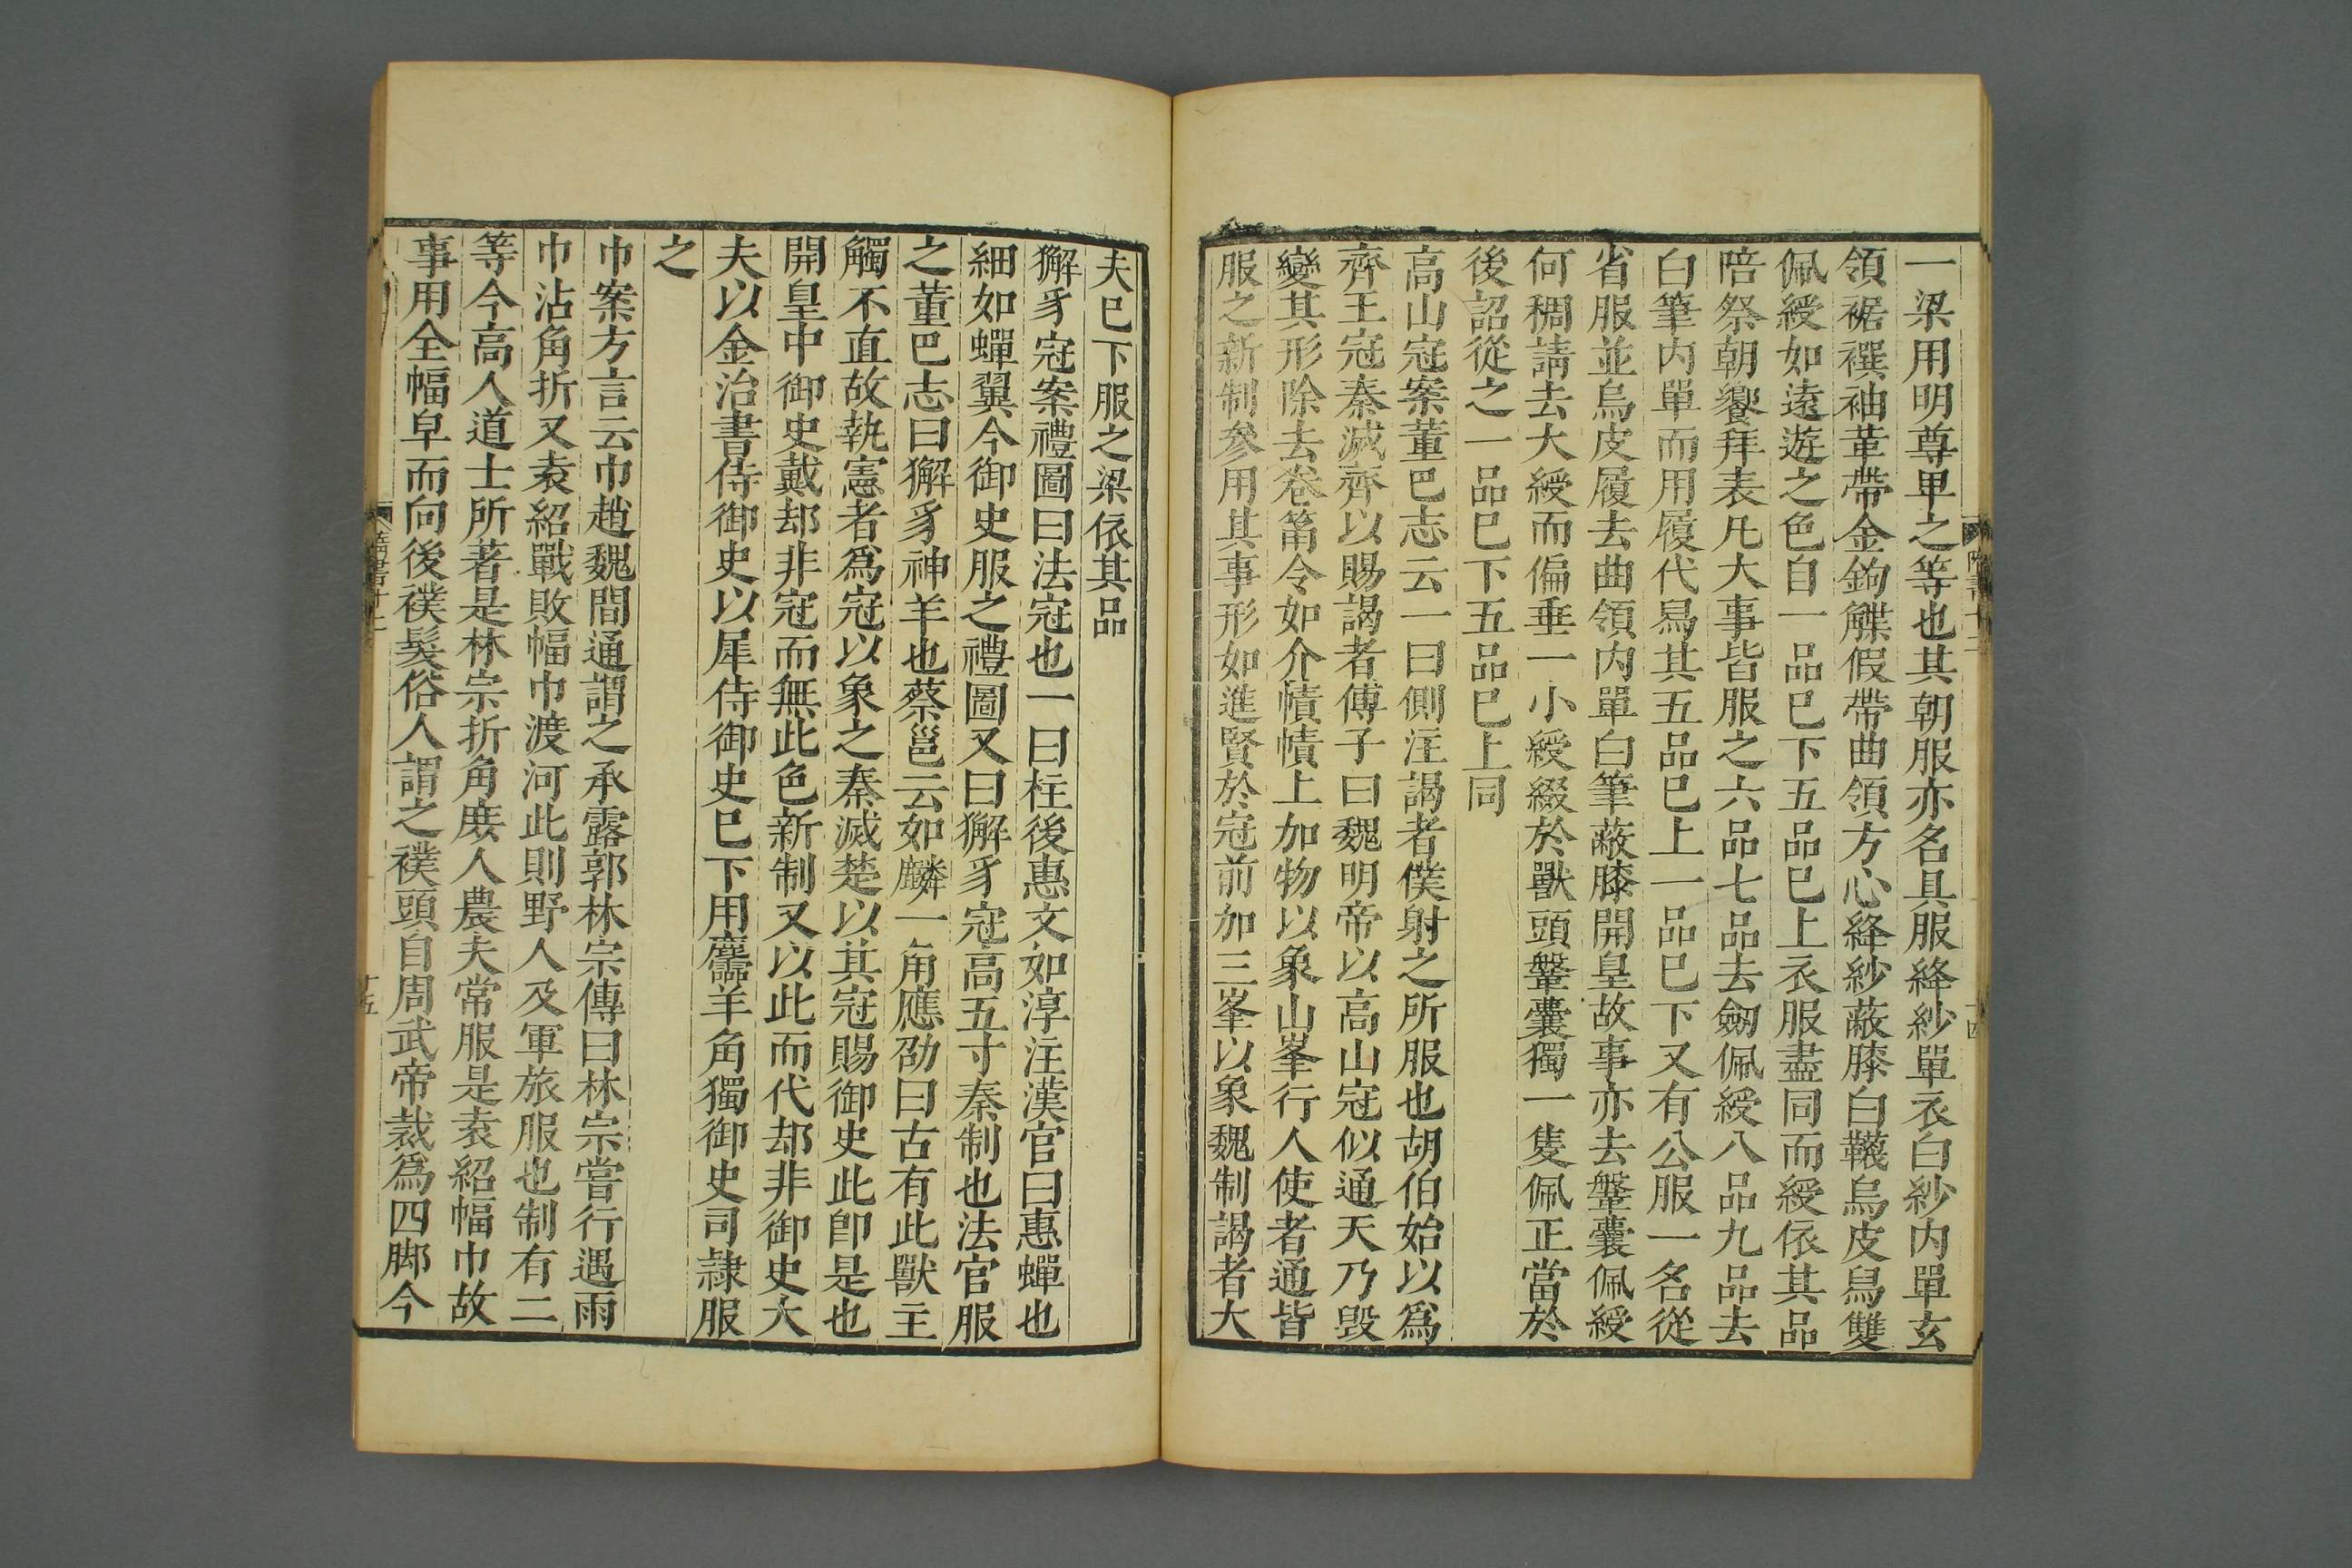 一梁用明尊卑之等也其朝服亦名具服絳紗單衣白紗内單玄
領裾襈袖革帶金鉤䚢假帶曲領方心絳紗蔽膝白韈烏皮舄雙
佩綬如遠遊之色自一品已下五品已上衣服盡同而綬依其品
陪祭朝饗拜表凡大事皆服之六品七品去劒佩綬八品九品去
白筆内單而用履代舄其五品已上一品已下又有公服一名從
省服並烏皮履去曲領内單白筆蔽膝開皇故事亦去鞶囊佩綬
何稠請去大綬而偏垂一小綬綴於獸頭鞶囊獨一隻佩正當於
後詔從之一品已下五品已上同
高山冠案董巴志云一曰側注謁者僕射之所服也胡伯始以爲
齊王冠秦滅齊以賜謁者傅子曰魏明帝以高山冠似通天乃毀
變其形除去卷筩令如介幘幘上加物以象山峯行人使者通皆
服之新制參用其事形如進賢於冠前加三峯以象魏制謁者大
夫已下服之梁依其品
獬豸冠案禮圖曰法冠也一曰柱後惠文如淳注漢官曰惠蟬也
細如蟬翼今御史服之禮圖又曰獬豸冠高五寸秦制也法官服
之董巴志曰獬豸神羊也蔡邕云如麟一角應劭曰古有此獸主
觸不直故執憲者爲冠以象之秦滅楚以其冠賜御史此卽是也
開皇中御史戴却非冠而無此色新制又以此而代却非御史大
夫以金治書侍御史以犀侍御史已下用麢羊角獨御史司隸服
之
巾案方言云巾趙魏間通謂之承露郭林宗傳曰林宗嘗行遇雨
巾沾角折又袁紹戰敗幅巾渡河此則野人及軍旅服也制有二
等今高人道士所著是林宗折角庶人農夫常服是袁紹幅巾故
事用全幅皁而向後襆髮俗人謂之襆頭自周武帝裁爲四脚今